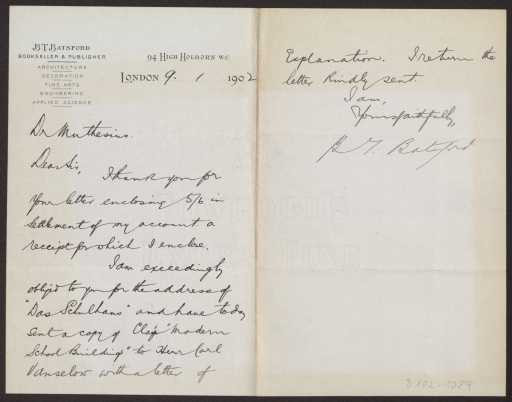 B.T. BATSFORD
BOOKSELLER & PUBLISHER
ARCHITECTURE
DECORATION
FINE ARTS
ENGINEERING
APPLIED SCIENCE
94 HIGH HOLBORN W.C.
LONDON 9. 1 1902
Dr Muthesius.
Dear Sir,
I thank you for
your letter enclosing 5/6 in
settlement of my account a
receipt for which I enclose.
I am exceedingly
obliged to you for the address of
"Das Schulhaus" and have to day
sent a copy of Clay's "Modern
School Buildings" to Herr Carl
Vanselow with a letter of
Explanation. I return the
letter kindly sent.
I am,
Yours faithfully,
B T Batsford